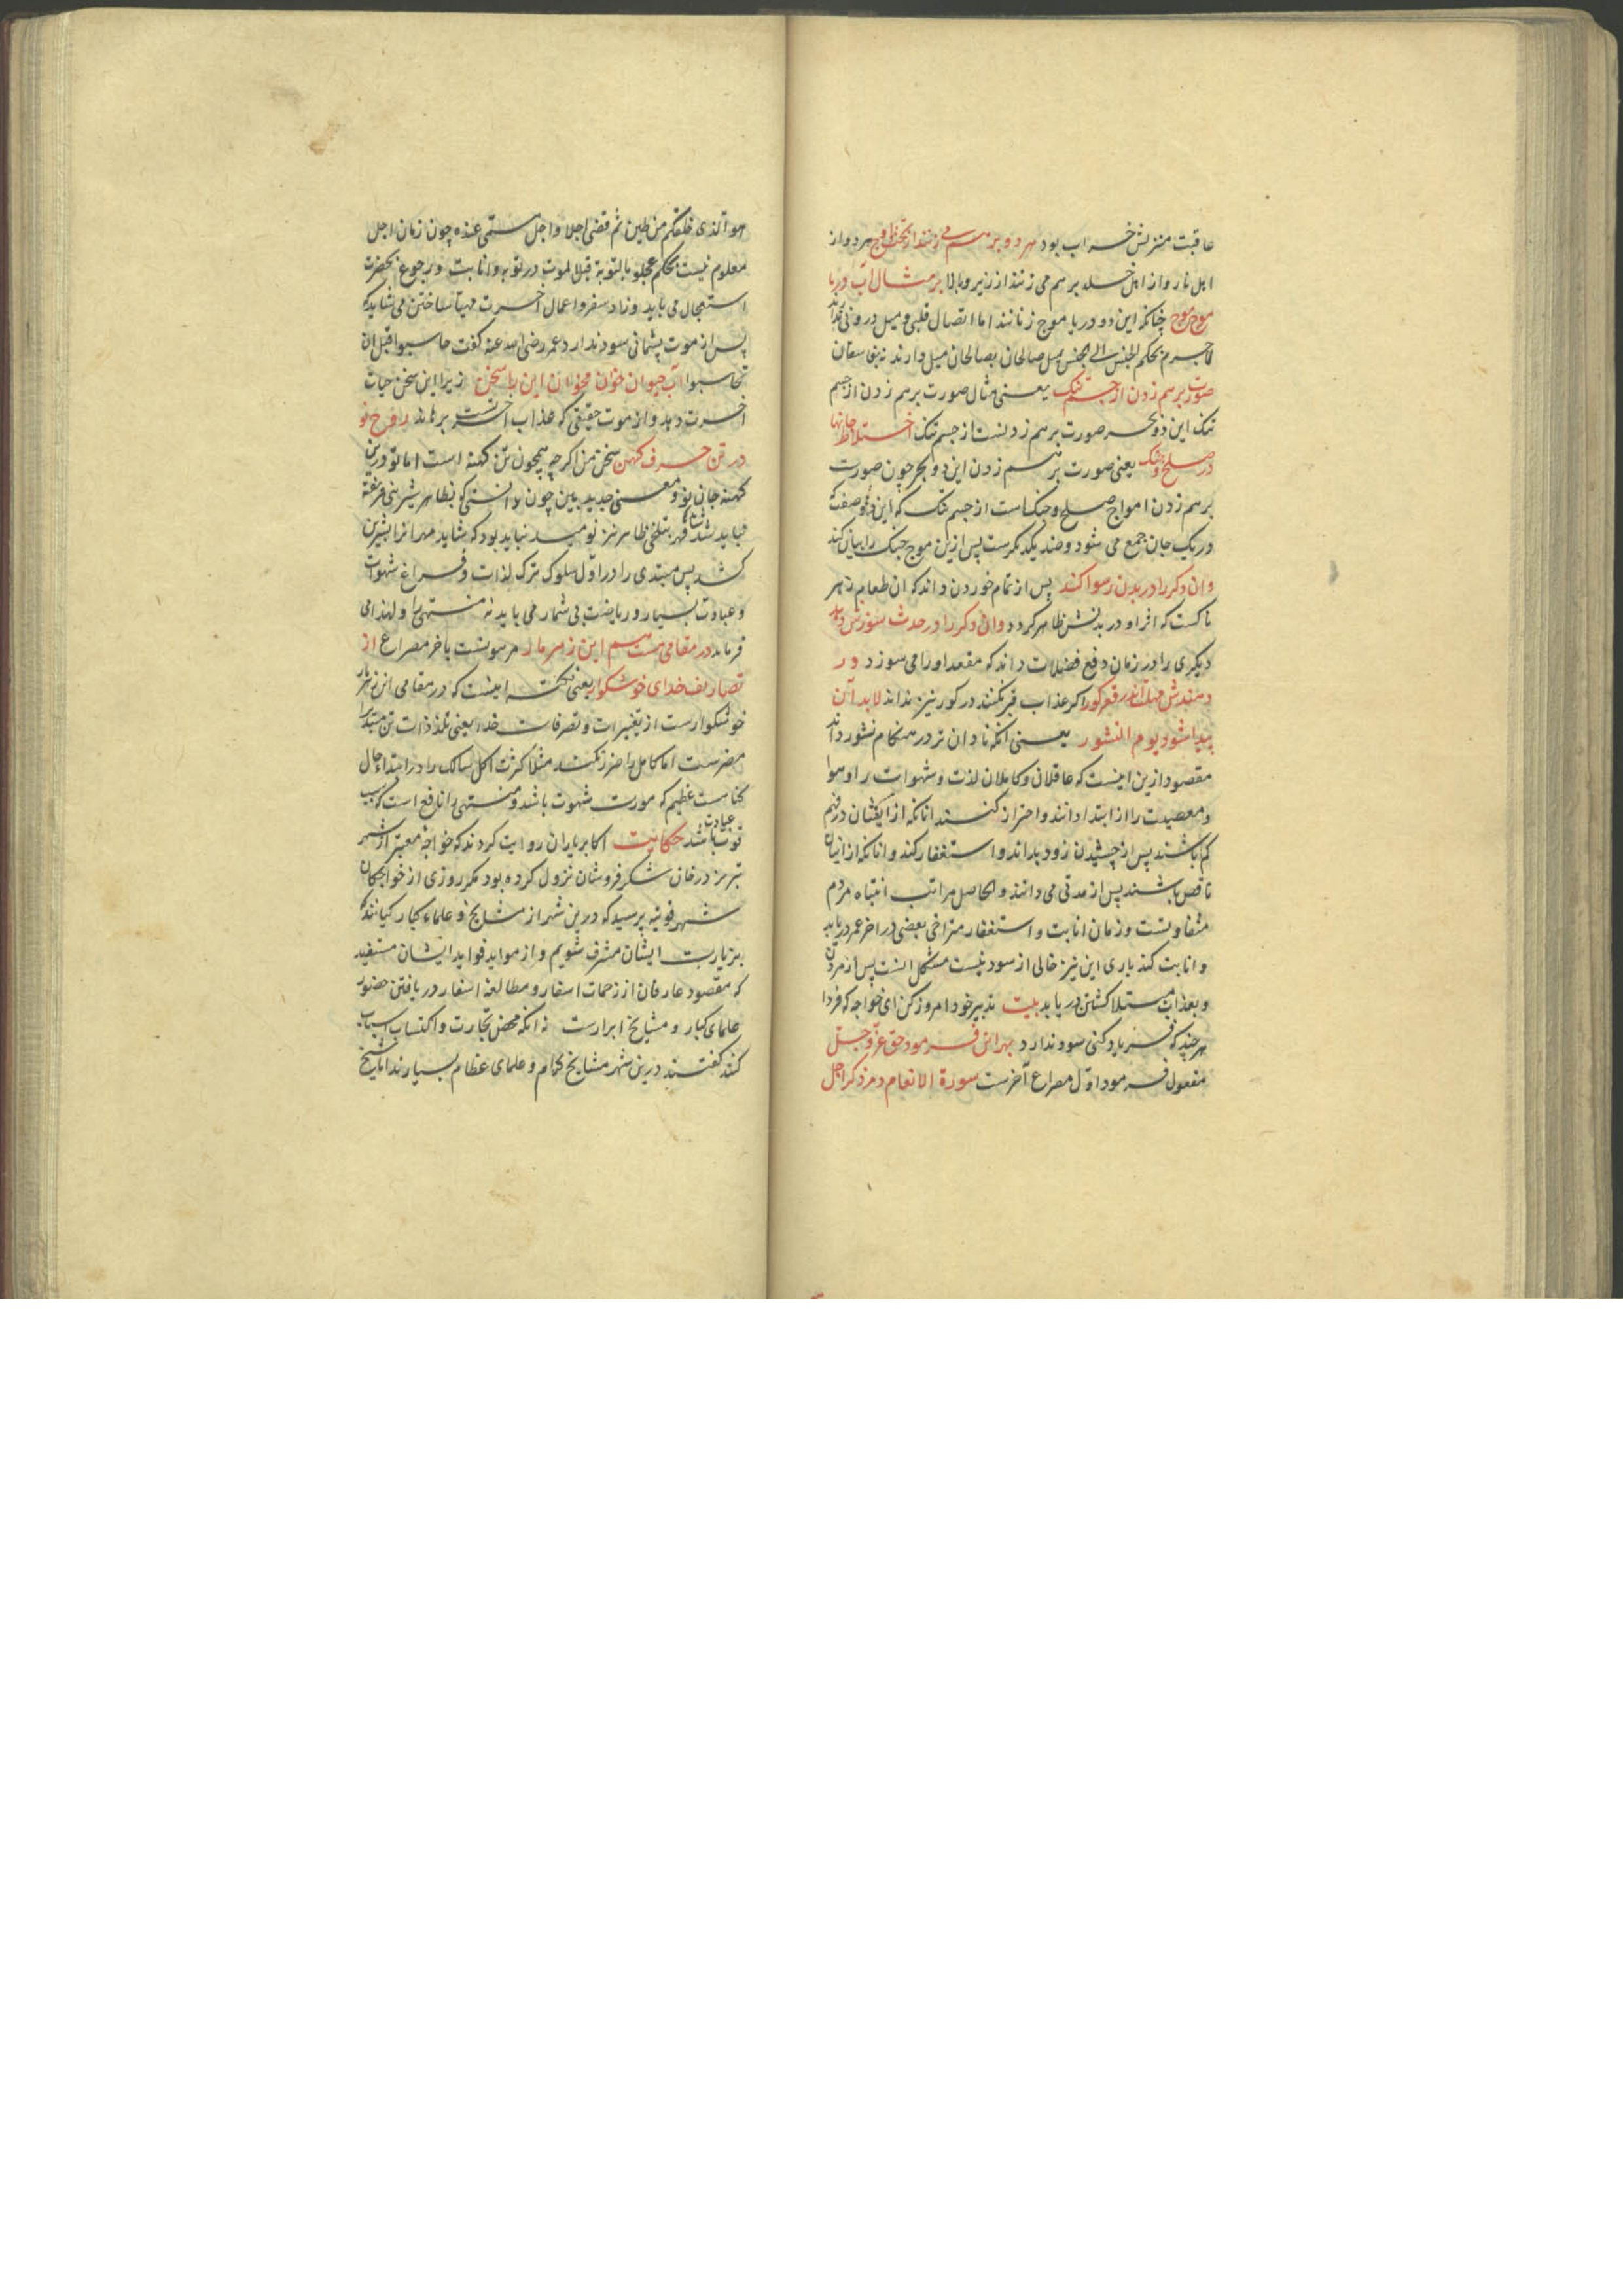 عاقبت منزلش خراب بود هر دو بر هم می زنند از تحت و اوج هر دو از
اهل نار و از اهل خلد بر هم می زنند از زیر و بالا بر مثال آب دریا
موج موج چنانکه این دو دریا موج زنانند اما اتصال قلبی و میل درونی ندارند
لاجرم بحکم الجنس الی الجنس میل صالحان بصالحان میل دارند نه بفاسقان
صورت برهم زدن از جسم تنک یعنی مثال صورت برهم زدن از جسم
تنک این دو بحر صورت برهم زدنست از جسم تنک اختلاط جانها
در صلح و جنک یعنی صورت برهم زدن این دو بحر چون صورت
برهم زدن امواج صلح و جنک است از جسم تنک که این دو صفت
در یک جان جمع می شود و ضد یکدیکرست پس ازین موج جنک را بیان کند
وان دکر را در بدن رسوا کند پس از تمام خوردن داند که ان طعام زهر
ناکست که اثر او در بدنش ظاهر کردد وان دکر را در حدث سوزش دهد
دیکری را در زمان دفع فضلات داند که مقعد او را می سوزد ور
دهندش مهلت اندر قعر کور اکر عذاب قبر نکنند در کور نیز نداند لابد آن
پیدا شود یوم النشور یعنی انکه نادان تر در هنکام نشور داند
مقصود ازین اینست که عاقلان و کاملان لذت و شهوات را و هوا
و معصیت را از ابتدا دانند و احتراز کنند انانکه از ایشان در فهم
کم باشند پس از چشیدن زود بداند و استغفار کند و انانکه از اینان
ناقص باشند پس از مدتی می دانند و الحاصل مراتب انتباه مردم
متفاوتست و زمان انابت و استغفار متراخی بعضی در اخر عمر دریابد
و انابت کند باری این نیز خالی از سود نیست مشکل انست پس از مردن
و بعذاب مبتلا کشتن دریابد بیت تدبیر خود امروز کن ای خواجه که فردا
هر چند که فریاد کنی سود ندارد بهر این فرمود حق عز و جل
مفعول فرمود اول مصراع آخرست سورة الانعام در ذکر اجل
هو الذی خلقکم من طین ثم قضی اجلا و اجل مسمی عنده چون زمان اجل
معلوم نیست بحکم عجلو بالتوبة قبل الموت در توبه و انابت و رجوع بحضرت
استعجال می باید و زاد سفر و اعمال آخرت مهیا ساختن می شاید که
پس از موت پشمانی سود ندارد عمر رضی الله عنه کفت حاسبوا قبل ان
تحاسبوا آب حیوان خوان مخوان این را سخن زیرا این سخن حیات
آخرت دهد و از موت حقیقی که عذاب آخرتست برهاند روح نو
در تن حرف کهن سخن من اکر چه همچون تن کهنه است اما تو درین
کهنه جان نو و معنی جدید ببین چون دانستی که بظاهر شیرینی فریفته
نباید شدن بتلخی ظاهر نیز نومید نباید بود که شاید مهر انرا بشیرین
کشد پس مبتدی را در اول سلوک ترک لذات و فراغ شهوات
و عبادت بسیار و ریاضت بی شمار می باید نه منتهی را و لهذا می
فرماید در مقامی هست هم این زهر مار مرهونست باخر مصراع از
تصاریف خدای خوشکوار یعنی نکته اینست که در مقامی این زهر مار
خوشکوارست از تغییرات و تصرفات خدا یعنی تلذذات تن مبتدی را
مضرست اما کامل را ضرر نکند مثلا کثرت اکل سالک را در ابتداء حال
کناهست عظیم که مورث شهوت باشد و منتهی را نافع است که سبب
قوت عبادت باشد حکایت اکابر یاران روایت کردند که خواجه معتبر از شهر
تبریز در خان شکر فروشان نزول کرده بود مکر روزی از خواجکان
شهر قونیه پرسید که درین شهر از مشایخ و علماء کبار کیانند که
بزیارت ایشان مشرف شویم و از مواید فواید ایشان مستفید
که مقصود عارفان از زحمات اسفار و مطالعه اسفار دریافتن حضور
علمای کبار و مشایخ ابرارست نه انکه محض تجارت و اکتساب اسباب
کنند کفتند درین شهر مشایخ کرام و علمای عظام بسیارند اما شیخ